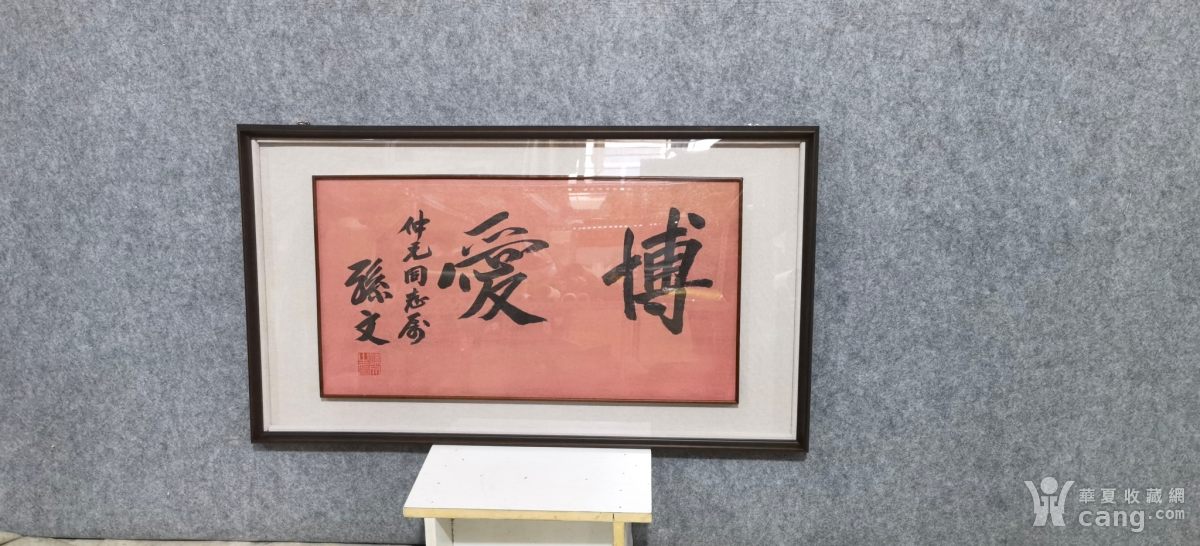 博愛
仲元同志属
孫文
華夏收藏網
cang.com